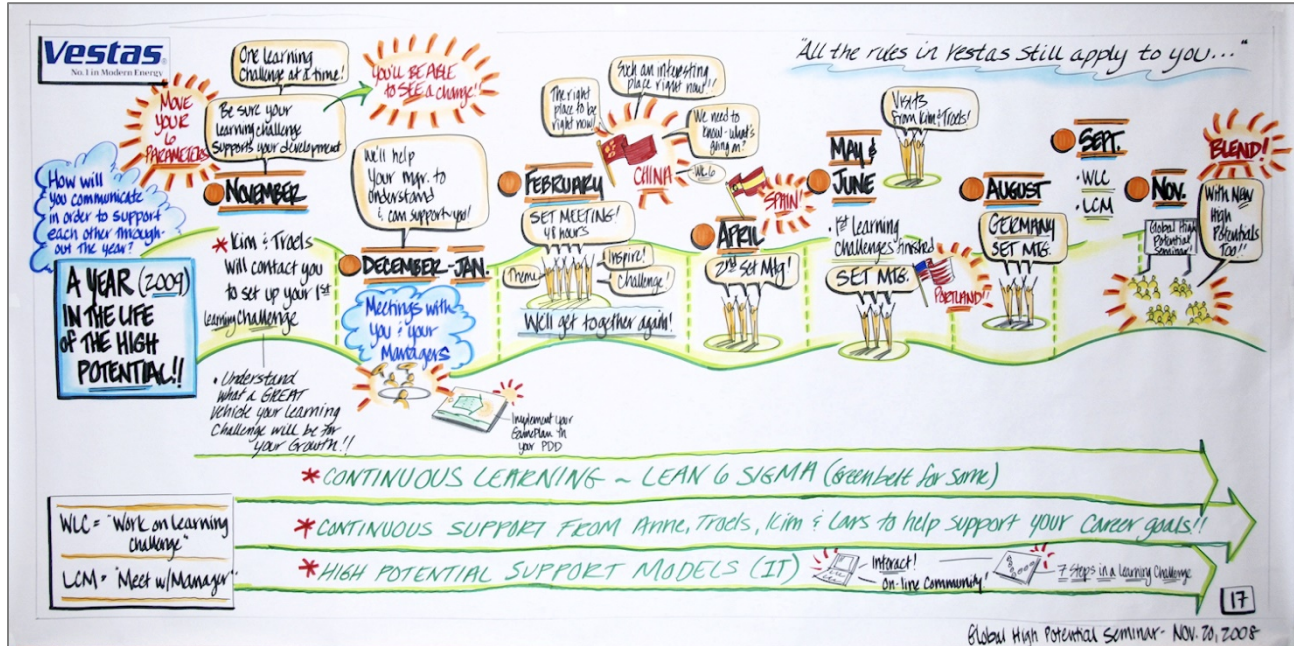 Vestas
No. 1 in Modern Energy
"All the rules in Vestas still apply to you..."
One learning
challenge at a time!
Be sure your
learning challenge
supports your development
You'll BE ABLE
to SEE a change!!
MOVE
YOUR
6
PARAMETERS
How will
you communicate
in order to support
each other through-
out the year?
A YEAR (2009)
IN THE LIFE
of THE HIGH
POTENTIAL!!
NOVEMBER
* Kim & Troels
will contact you
to set up your 1st
learning Challenge
• Understand
what a GREAT
vehicle your learning
Challenge will be for
your Growth!!
We'll help
your mgr. to
understand
& can support you!
DECEMBER-JAN.
Meetings with
you & your
Managers
Implement your
GamePlan in
your PDD
The right
place to be
right now!
Such an interesting
place right now!!
We need to
know - what's
going on?
CHINA
FEBRUARY
SET MEETING!
48 hours
Theme
Inspire!
Challenge!
We'll get together again!
SPAIN!
APRIL
2nd Set Mtg!
MAY &
JUNE
• 1st learning
challenges finished
SET MTG.
PORTLAND!!
Visits
from Kim & Troels!
AUGUST
GERMANY
SET MTG.
SEPT.
• WLC
• LCM
NOV.
Global High
Potential
Seminar!
BLEND!
With NEW
High
Potentials
Too!!
* CONTINUOUS LEARNING ~ LEAN 6 SIGMA (Greenbelt for some)
* CONTINUOUS SUPPORT FROM Anne, Troels, Kim & Lars to help support your Career goals!!
* HIGH POTENTIAL SUPPORT MODELS (IT)
Interact!
On-line Community!
7 Steps in a Learning Challenge
WLC = "Work on Learning
Challenge"
LCM = "Meet w/Manager"
17
Global High Potential Seminar - NOV. 20, 2008